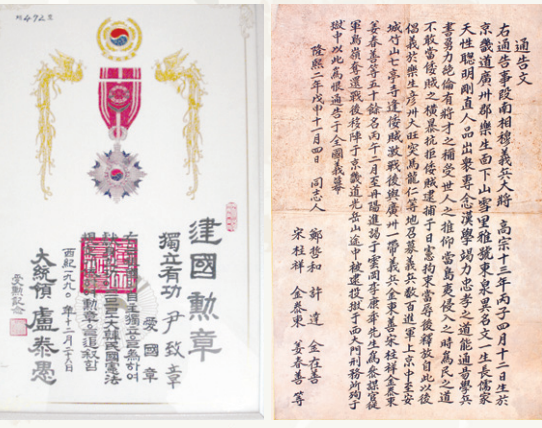 建國勳章
獨立有功 尹致章
愛國章
自主獨立을 爲하여
大韓民國憲法
勳章을 追敍함
西紀一九九○年十二月二十六日
大統領 盧泰愚
受勳記念
通告文
右通告事段南相穆義兵大將 高宗十三年丙子四月十二日生於
京畿道廣州郡樂生面下山雲里雅號東泉異名文一生長儒家
天性聰明剛直人品出衆專念漢學竭力忠孝之道能通易學兵
書勇力絶倫有將才之稱受世人之推仰當島夷侵入之時爲民之道
不敢當倭賊之橫暴抗拒倭賊逮捕于日憲拘束當辱後釋放自此以後
倡義於樂生彦州大旺突馬龍仁等地召募義兵數百進軍上京中至安
城竹山七亭寺逢倭賊激戰後與廣州一帶義兵金東善宋桂祥金泰東
姜春善等五十餘名丙午二月至丹陽進謁于雲岡李康秊先生爲參謀官從
軍鳥嶺奪還戰後移陣于京畿道光岳山途中被逮投獄于西大門刑務所殉于
獄中以此爲恨通告于全國義幕
隆熙二年戊申十一月四日 同志人
鄭哲和 許達 金在善
宋桂祥 金泰東 姜春善 等